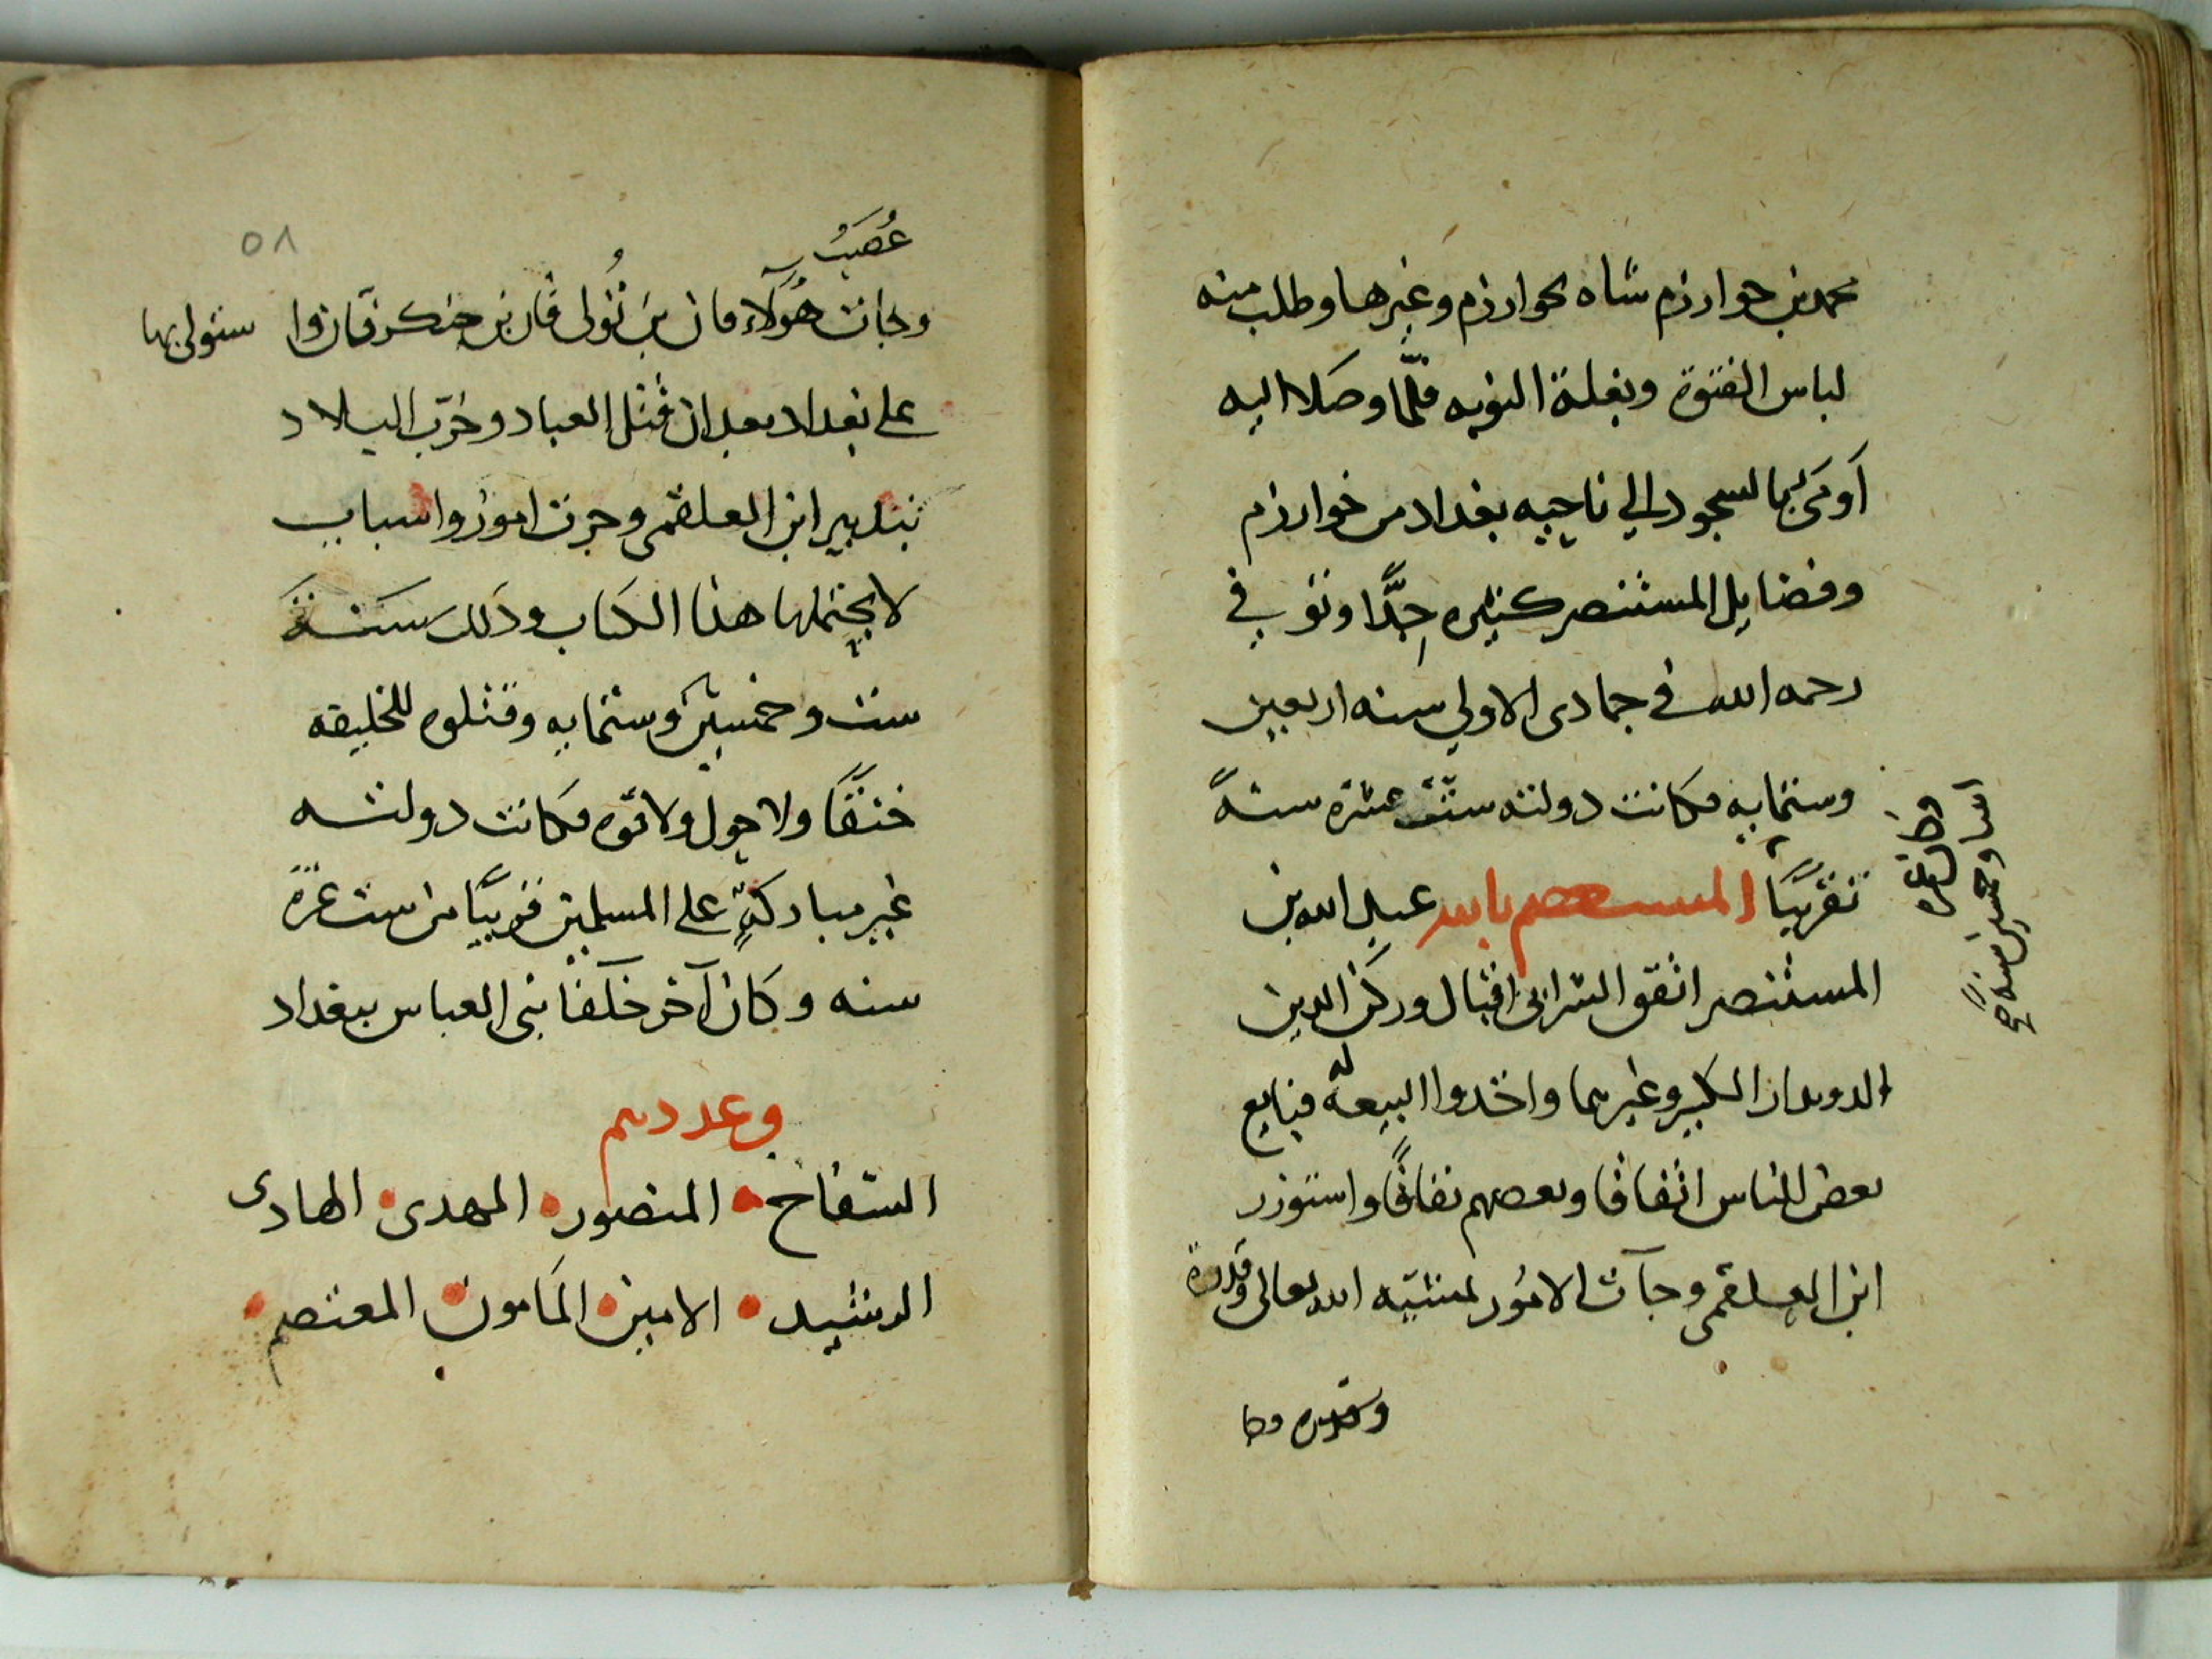 محمد بن خوارزم شاه بخوارزم وغيرها وطلب منه
لباس الفتوة وبغلة النوبه فلما وصلا اليه
أومى بالسجود الي ناحيه بغداد من خوارزم
وفضايل المستنصر كثيره جدًّا وتوفي
رحمه الله في جمادى الاولي سنه اربعين
وستمايه فكانت دولته ستّ عشرة سنةً
تقريبًا المستعصم بالله عبد الله بن
المستنصر اتفق الشرابى اقبال وركن الدين
الدويدار الكبير وغيرهما واخدوا البيعة له فبايع
بعض الناس اتفاقا وبعضهم نفاقًا واستوزر
ابن العلقمى وجآت الامُور لمشيّه الله تعالى وقدرة
وقدره
٥٨
عُصَبُ
وجات هُوَلآء قان بن تُولى قان بن جنكز قان وا ستولى بها
على بغداد بعد ان قتل العباد وخرّب البلاد
بتدبير ابن العلقمى وجرت امورٌ واسباب
لا يحتملها هذا الكتاب وذلك سَنَة
ست وخمسين وستمايه وقتلوه للخليفه
خنقًا ولا حول ولا قوه فكانت دولته
غير مباركةٍ على المسلمين قريبًا من ست عشرة
سنه وكان آخر خلفا بنى العباس ببغداد
وعددهم
السّفاح المنصور المهدى الهادى
الرشيد الامين المَامون المعتصم